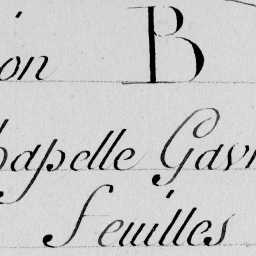 ion B
hapelle Gavr
feuilles